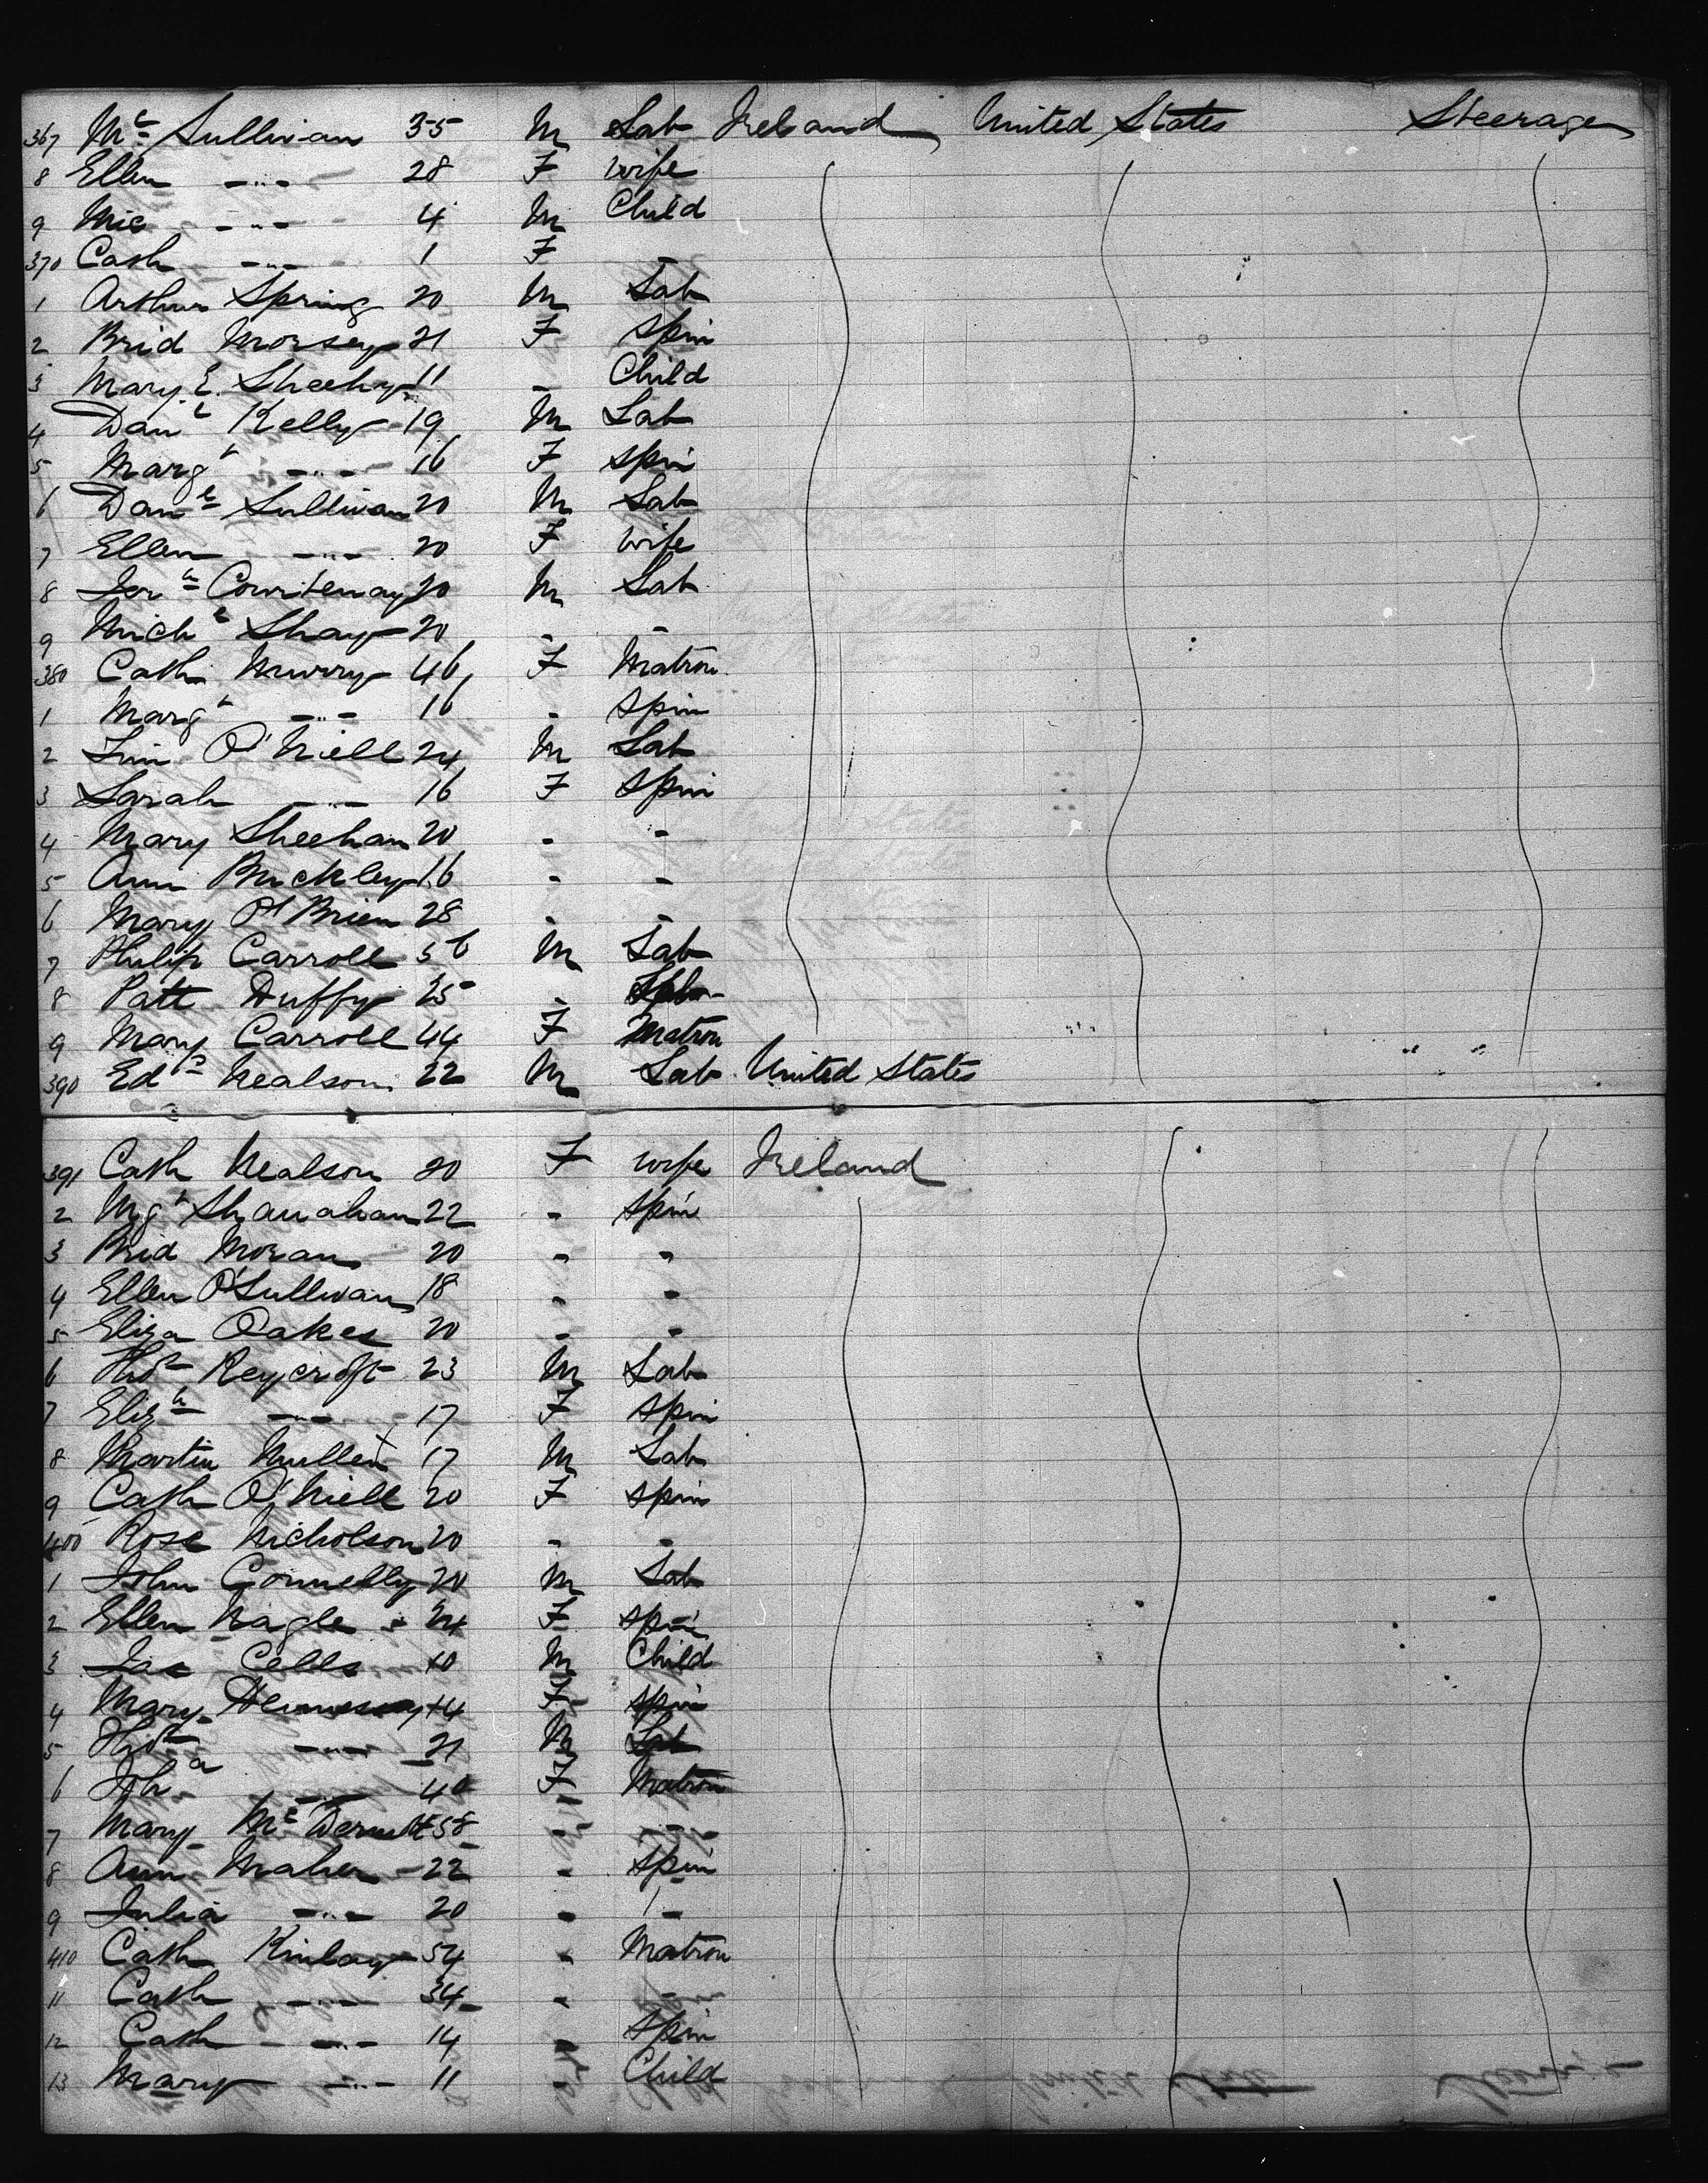 367 Mc Sullivan 35 M Lab Ireland United States Steerage
8 Ellen -"- 28 F wife
9 Mic -"- 4 M Child
370 Cath -"- 1 F -
1 Arthur Spring 20 M Lab
2 Brid Morsey 21 F Spin
3 Mary E. Sheehy 11 - Child
4 Danl Kelly 19 M Lab
5 Margt -"- 16 F Spin
6 Danl Sullivan 20 M Lab
7 Ellen -"- 20 F wife
8 Jerh Courtenay 20 M Lab
9 Michl Shay 20 - -
380 Cath Murry 46 F Matron
1 Margt -"- 16 - Spin
2 Jim O'Niell 24 M Lab
3 Sarah -"- 16 F Spin
4 Mary Sheehan 20 - -
5 Ann Buckley 16 - -
6 Mary O'Brien 28 - -
7 Philip Carroll 56 M Lab
8 Patt Duffy 25 -
9 Mary Carroll 44 F Matron
390 Edd Nealson 22 M Lab United States
391 Cath Nealson 20 F wife Ireland
2 Mgt Shanahan 22 - Spin
3 Brid Moran 20 - -
4 Ellen O'Sullivan 18 - -
5 Eliza Oakes 20 - -
6 Reycroft 23 M Lab
7 Elizh -"- 17 F Spin
8 Martin Mullen 17 M Lab
9 Cath O'Niell 20 F Spin
400 Rose Nicholson 20 - -
1 John Connelly 20 M Lab
2 Ellen Nagle 24 F Spin
3 Jas Cells 10 M Child
4 Mary Hennessy 14 F Spin
5 -"- 21 M Lab
6 Joha -"- 40 F Matron
7 Mary Mc Dermott 58 - -
8 Ann Maher 22 - Spin
9 Julia -"- 20 - -
410 Cath Kinlay 54 - Matron
11 Cath -"- 34 - -
12 Cath -"- 14 - Spin
13 Mary -"- 11 - Child